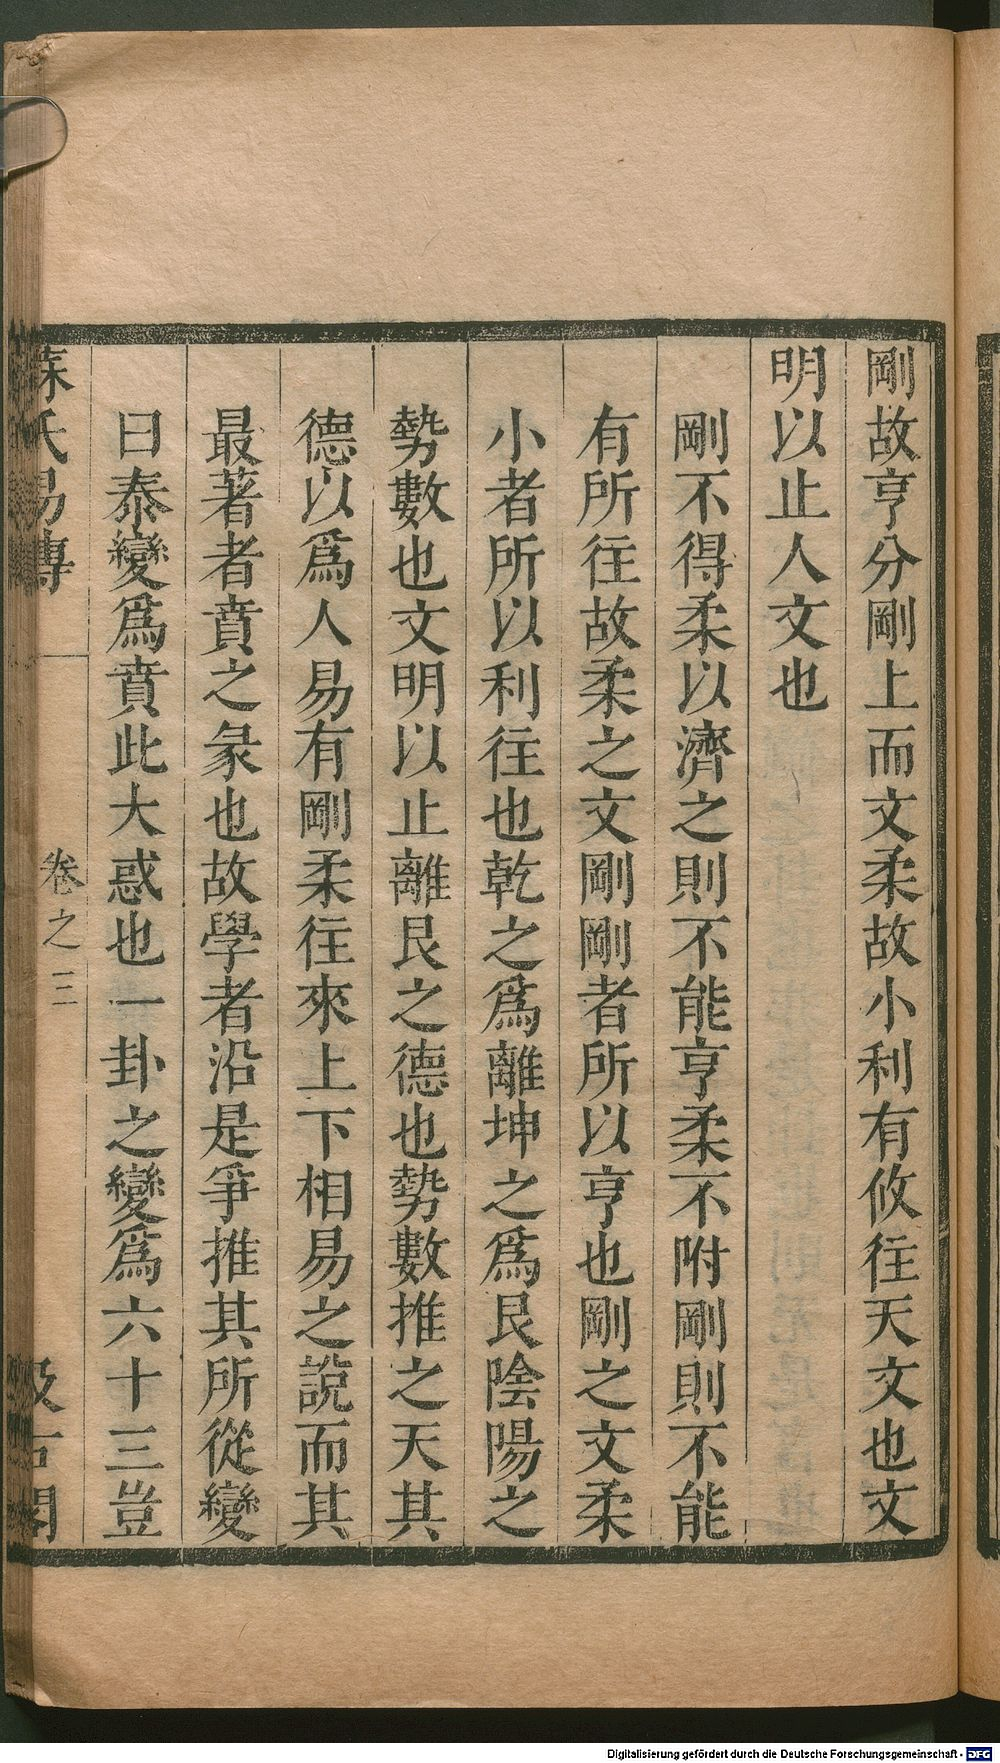 剛故亨分剛上而文柔故小利有攸往天文也文
明以止人文也
剛不得柔以濟之則不能亨柔不附剛則不能
有所往故柔之文剛剛者所以亨也剛之文柔
小者所以利往也乾之爲離坤之爲艮陰陽之
勢數也文明以止離艮之德也勢數推之天其
德以爲人易有剛柔往來上下相易之說而其
最著者賁之彖也故學者沿是爭推其所從變
曰泰變爲賁此大惑也一卦之變爲六十三豈
蘇氏易傳 卷之三 汲古閣
Digitalisierung gefördert durch die Deutsche Forschungsgemeinschaft - DFG